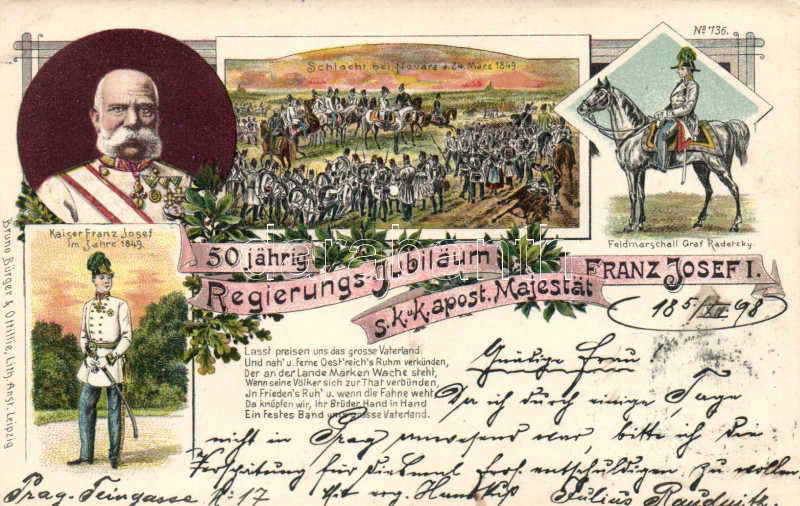 No 736.
Schlacht bei Novara a. 24. März 1849
Feldmarschall Graf Radetzky.
Kaiser Franz Josef
im Jahre 1849.
50 jährig
Regierungs-Jubiläum
s. k. u. k. apost. Majestät
FRANZ JOSEF I.
18 5/XII 98
Lasst preisen uns das grosse Vaterland
Und nah' u. ferne Oest'reich's Ruhm verkünden,
Der an der Lande Marken Wache steht,
Wenn seine Völker sich zur That verbünden,
Jn Frieden's Ruh' u. wenn die Fahne weht
Da knüpfen wir, ihr Brüder Hand in Hand
Ein festes Band ums grosse Vaterland.
Gnädige Frau!
Da ich durch einige Tage
nicht in Prag anwesend war, bitte ich die
Verspätung für diesmal entschuldigen zu wollen
Mit erg. Handkuß Julius Raudnitz
Prag-Teingasse No 17
Bruno Bürger & Ottillie, Lith. Anst. Leipzig
darabanth